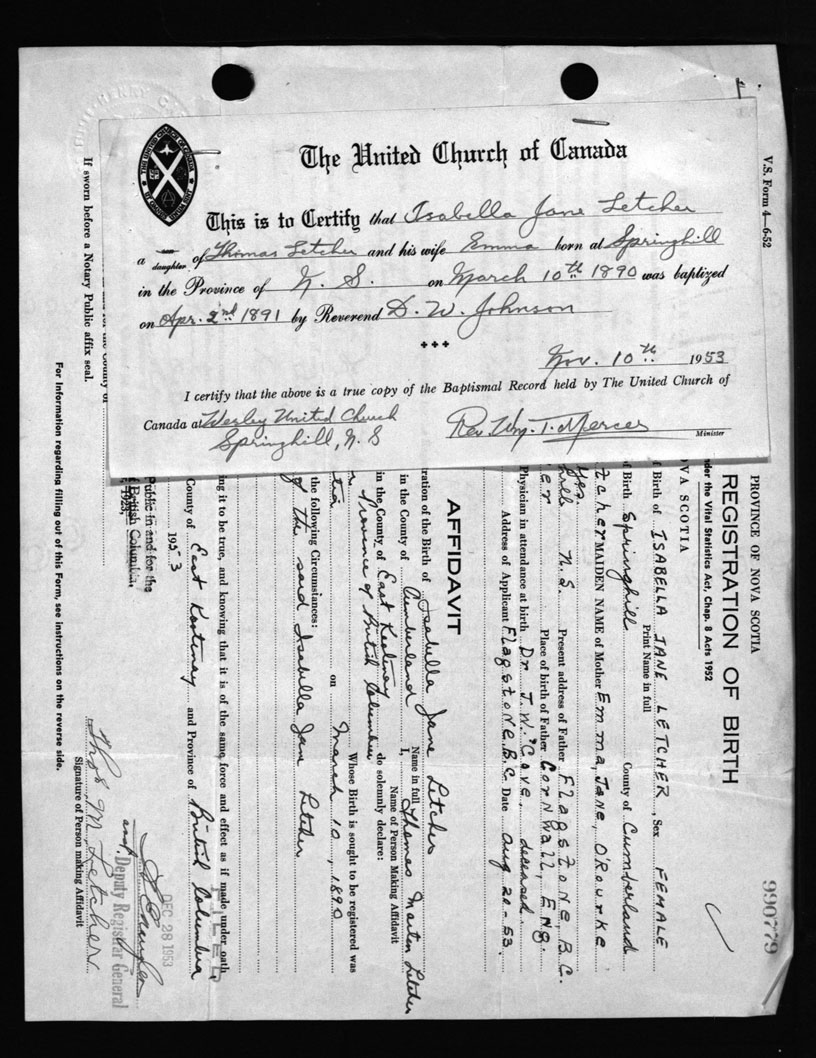 The United Church of Canada
This is to Certify that Isabella Jane Letcher
a daughter of Thomas Letcher and his wife Emma born at Springhill
in the Province of N. S. on March 10th 1890 was baptized
on Apr. 2nd 1891 by Reverend D. W. Johnson
Nov. 10th 1953
I certify that the above is a true copy of the Baptismal Record held by The United Church of
Canada at Wesley United Church
Springhill, N. S
Rev. Wm. T. Mercer
Minister
V.S. Form 4—6-52
990779
PROVINCE OF NOVA SCOTIA
REGISTRATION OF BIRTH
nder the Vital Statistics Act, Chap. 8 Acts 1952
OVA SCOTIA
f Birth of ISABELLA JANE LETCHER, Sex FEMALE
Print Name in full
f Birth Springhill County of Cumberland
tcher MAIDEN NAME of Mother Emma, Jane, O'Rourke
Yes.
hill N.S. Present address of Father Flagstone B.C.
er Place of birth of Father Cornwall, Eng.
Physician in attendance at birth Dr J.W. Cove, deceased.
Address of Applicant Flagstone, B.C. Date Aug 20-53.
AFFIDAVIT
ration of the Birth of Isabella Jane Letcher
Name in full
in the County of Cumberland I, Thomas Martin Letcher
Name of Person Making Affidavit
in the County of East Kootenay do solemnly declare:
Province of British Columbia
Whose Birth is sought to be registered was
tia on March 10, 1890
the following Circumstances:
of the said Isabella Jane Letcher
ng it to be true, and knowing that it is of the same force and effect as if made under oath.
County of East Kootenay and Province of British Columbia
1953
FILED
DEC 28 1953
Public in and for the
of British Columbia
Deputy Registrar General
Thos M Letcher
Signature of Person making Affidavit
If sworn before a Notary Public affix seal.
For Information regarding filling out of this Form, see instructions on the reverse side.